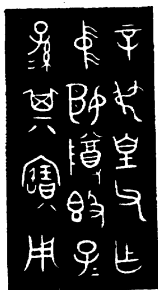 辛叔皇父乍
中姬尊簋子
孫其寶用